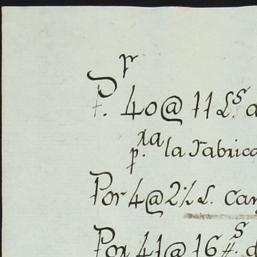 pr
P. 40@ 11 L.s d
p.ra la Fabrica
Por 4@2½ L. Car
Por 41@16 #.s d